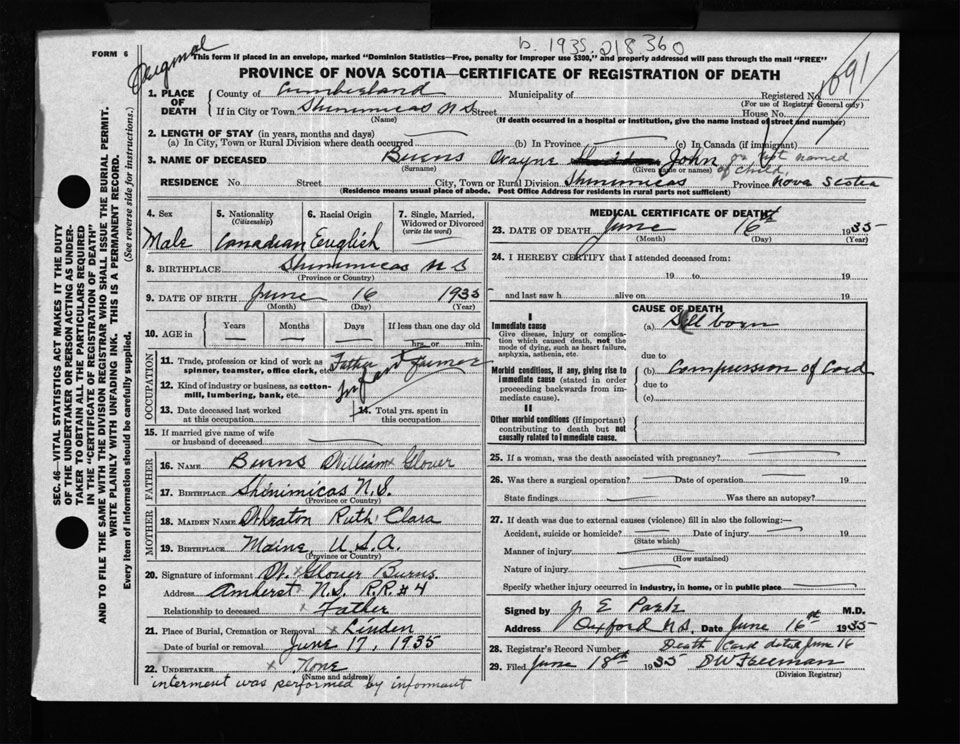 b. 1935. 218360
FORM 6
Original
This form if placed in an envelope, marked "Dominion Statistics—Free, penalty for improper use $300," and properly addressed will pass through the mail "FREE"
PROVINCE OF NOVA SCOTIA—CERTIFICATE OF REGISTRATION OF DEATH
1691
SEC. 46—VITAL STATISTICS ACT MAKES IT THE DUTY
OF THE UNDERTAKER OR PERSON ACTING AS UNDER-
TAKER TO OBTAIN ALL THE PARTICULARS REQUIRED
IN THE "CERTIFICATE OF REGISTRATION OF DEATH"
AND TO FILE THE SAME WITH THE DIVISION REGISTRAR WHO SHALL ISSUE THE BURIAL PERMIT.
WRITE PLAINLY WITH UNFADING INK. THIS IS A PERMANENT RECORD.
Every item of information should be carefully supplied. (See reverse side for instructions.)
1. PLACE OF DEATH County of Cumberland Municipality of Registered No.
(For use of Registrar General only)
If in City or Town Shinimicas N S Street House No.
(Name) (If death occurred in a hospital or institution, give the name instead of street and number)
2. LENGTH OF STAY (in years, months and days)
(a) In City, Town or Rural Division where death occurred (b) In Province (c) In Canada (if immigrant)
3. NAME OF DECEASED Burns Wayne John or not named
(Surname) (Given name or names) of child.
RESIDENCE No. Street City, Town or Rural Division Shinimicas Province Nova Scotia
(Residence means usual place of abode. Post Office Address for residents in rural parts not sufficient)
4. Sex 5. Nationality 6. Racial Origin 7. Single, Married, Widowed or Divorced
(Citizenship) (write the word)
Male Canadian English
8. BIRTHPLACE Shinimicas N S
(Province or Country)
9. DATE OF BIRTH June 16 1935
(Month) (Day) (Year)
10. AGE in Years Months Days If less than one day old
hrs. or min.
OCCUPATION
11. Trade, profession or kind of work as spinner, teamster, office clerk, etc. Father Farmer
Infant
12. Kind of industry or business, as cotton-mill, lumbering, bank, etc.
13. Date deceased last worked at this occupation
14. Total yrs. spent in this occupation
15. If married give name of wife or husband of deceased
FATHER
16. NAME Burns William Glover
17. BIRTHPLACE Shinimicas N.S.
(Province or Country)
MOTHER
18. MAIDEN NAME Wheaton Ruth Clara
19. BIRTHPLACE Maine, U.S.A.
(Province or Country)
20. Signature of informant W. Glover Burns.
Address Amherst N.S. R.R. #4
Relationship to deceased Father
21. Place of Burial, Cremation or Removal Linden
Date of burial or removal June 17, 1935
22. UNDERTAKER None
(Name and address)
interment was performed by informant
MEDICAL CERTIFICATE OF DEATH
23. DATE OF DEATH June 16th 1935
(Month) (Day) (Year)
24. I HEREBY CERTIFY that I attended deceased from:
19 to 19
and last saw h alive on 19
CAUSE OF DEATH
I
Immediate cause
Give disease, injury or complication which caused death, not the mode of dying, such as heart failure, asphyxia, asthenia, etc.
(a) Still born
due to
Morbid conditions, if any, giving rise to immediate cause (stated in order proceeding backwards from immediate cause).
(b) Compression of Cord
due to
(c)
II
Other morbid conditions (if important) contributing to death but not causally related to immediate cause.
25. If a woman, was the death associated with pregnancy?
26. Was there a surgical operation? Date of operation 19
State findings Was there an autopsy?
27. If death was due to external causes (violence) fill in also the following:—
Accident, suicide or homicide? Date of injury 19
(State which)
Manner of injury
(How sustained)
Nature of injury
Specify whether injury occurred in industry, in home, or in public place
Signed by J E Park M.D.
Address Oxford N.S. Date June 16th 1935
28. Registrar's Record Number Death Card dated June 16
29. Filed June 18th 1935 D W Freeman
(Division Registrar)